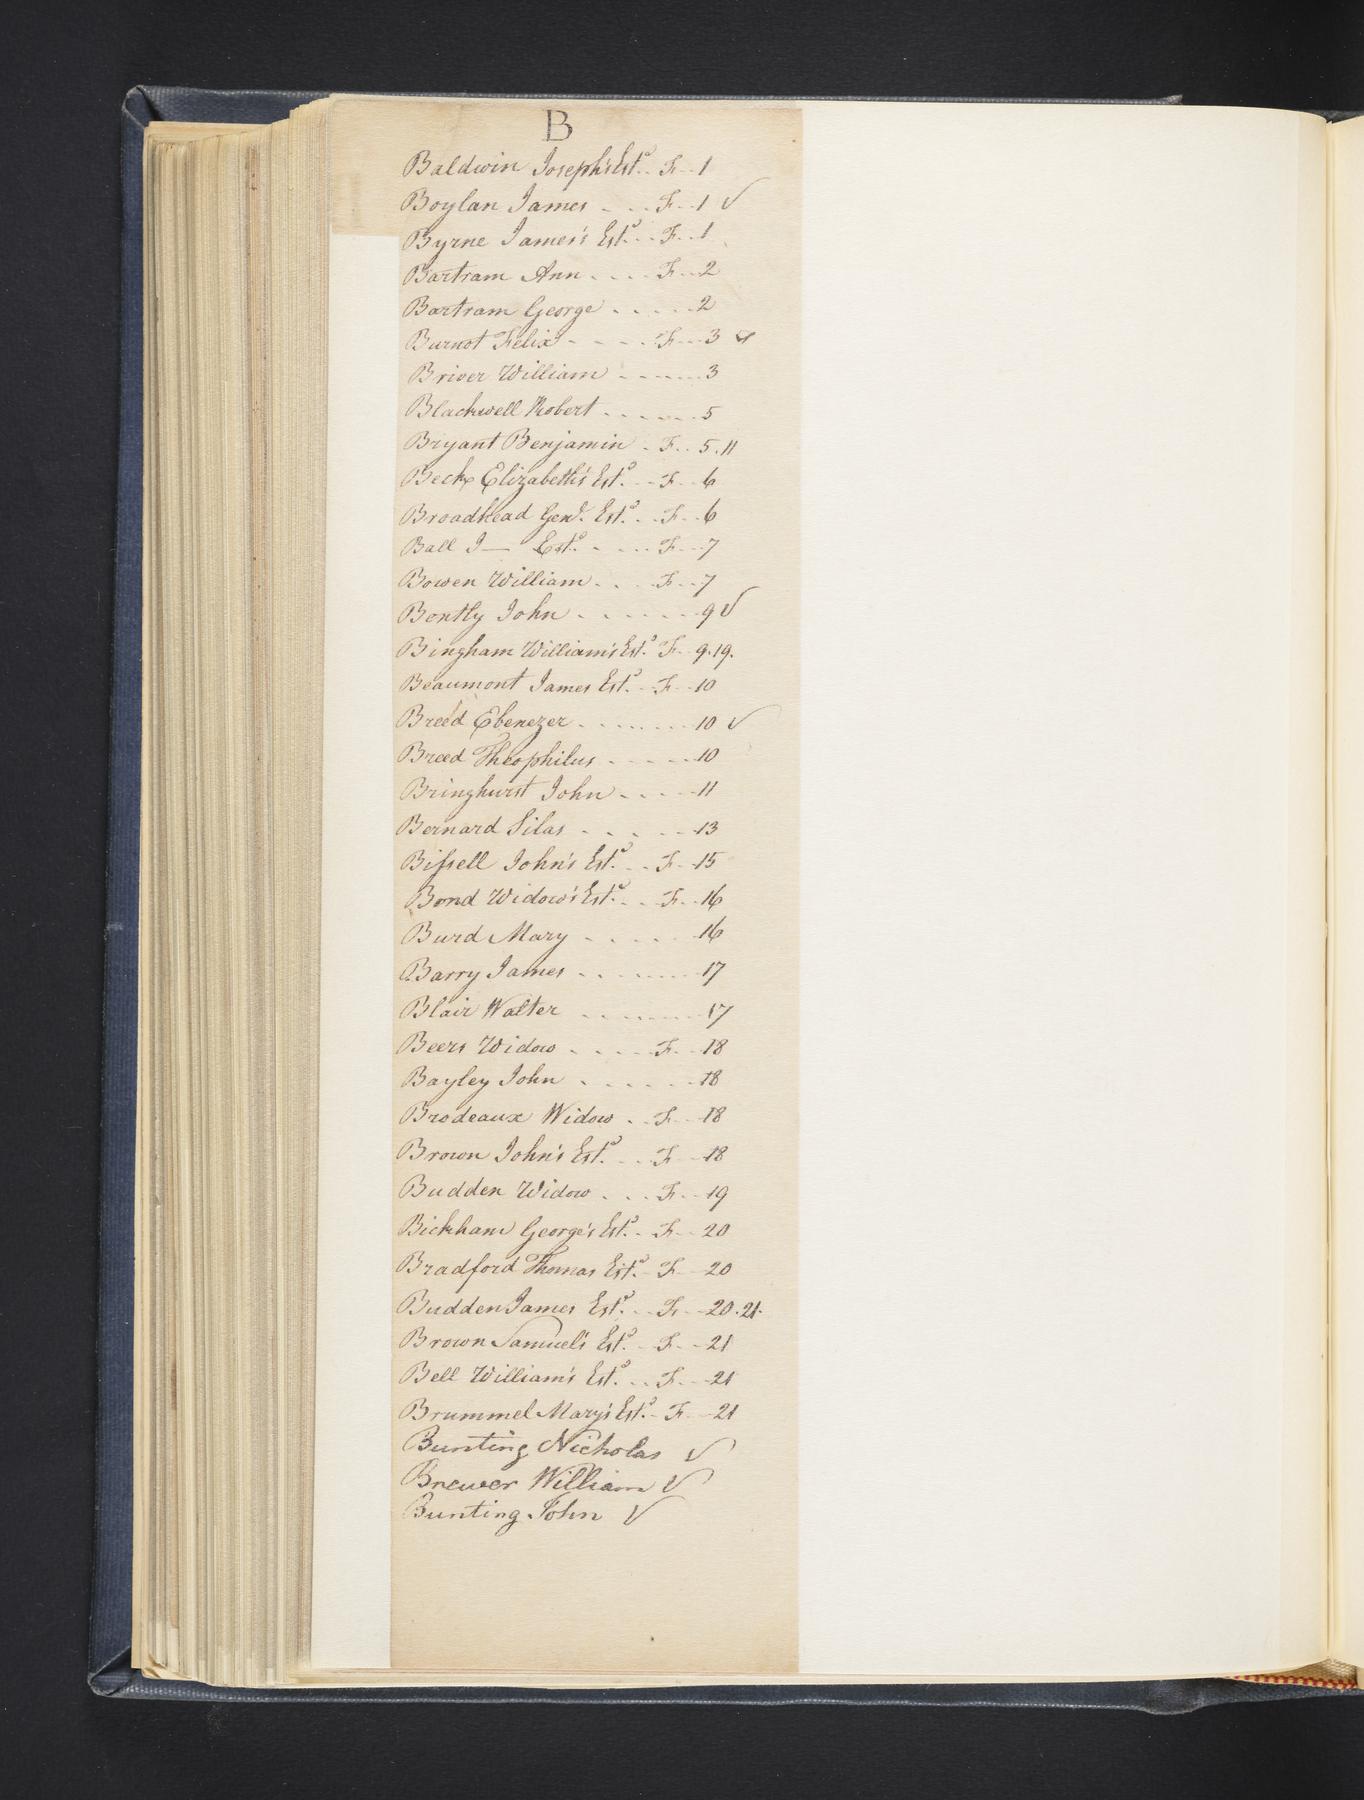 B
Baldwin Joseph's Est.e .. F .. 1
Boylan James - . .. F .. 1 √
Byrne James's Est.e .. F .. 1
Bartram Ann .... F .. 2
Bartram George ..... 2
Burnot Felix - - - - F ... 3
Briver William ...... 3
Blackwell Robert ...... 5
Bryant Benjamin . F .. 5.11
Beck Elizabeth's Est.e .. F .. 6
Broadhead Genl. Est.e .. F .. 6
Ball J— Est.e . ... F ... 7
Bowen William .... F .. 7
Bently John ...... 9 √
Bingham William's Est.e F .. 9.19.
Beaumont James Est.e .. F .. 10
Breed Ebenezer ....... 10 √
Breed Theophilus ..... 10
Bringhurst John .... 11
Bernard Silas ...... 13
Bissell John's Est.e .. F .. 15
Bond Widow's Est.e ... F .. 16
Burd Mary ..... 16
Barry James ....... 17
Blair Walter ....... 17
Beers Widow .... F .. 18
Bayley John ...... 18
Brodeaux Widow .. F .. 18
Brown John's Est.e ... F .. 18
Budden Widow ... F .. 19
Bickham George's Est.e . F .. 20
Bradford Thomas Est.e . F .. 20
Budden James Est.e .. F .. 20.21.
Brown Samuel's Est.e . F .. 21
Bell William's Est.e .. F ... 21
Brummel Mary's Est.e . F .. 21
Bunting Nicholas √
Brewer William √
Bunting John √